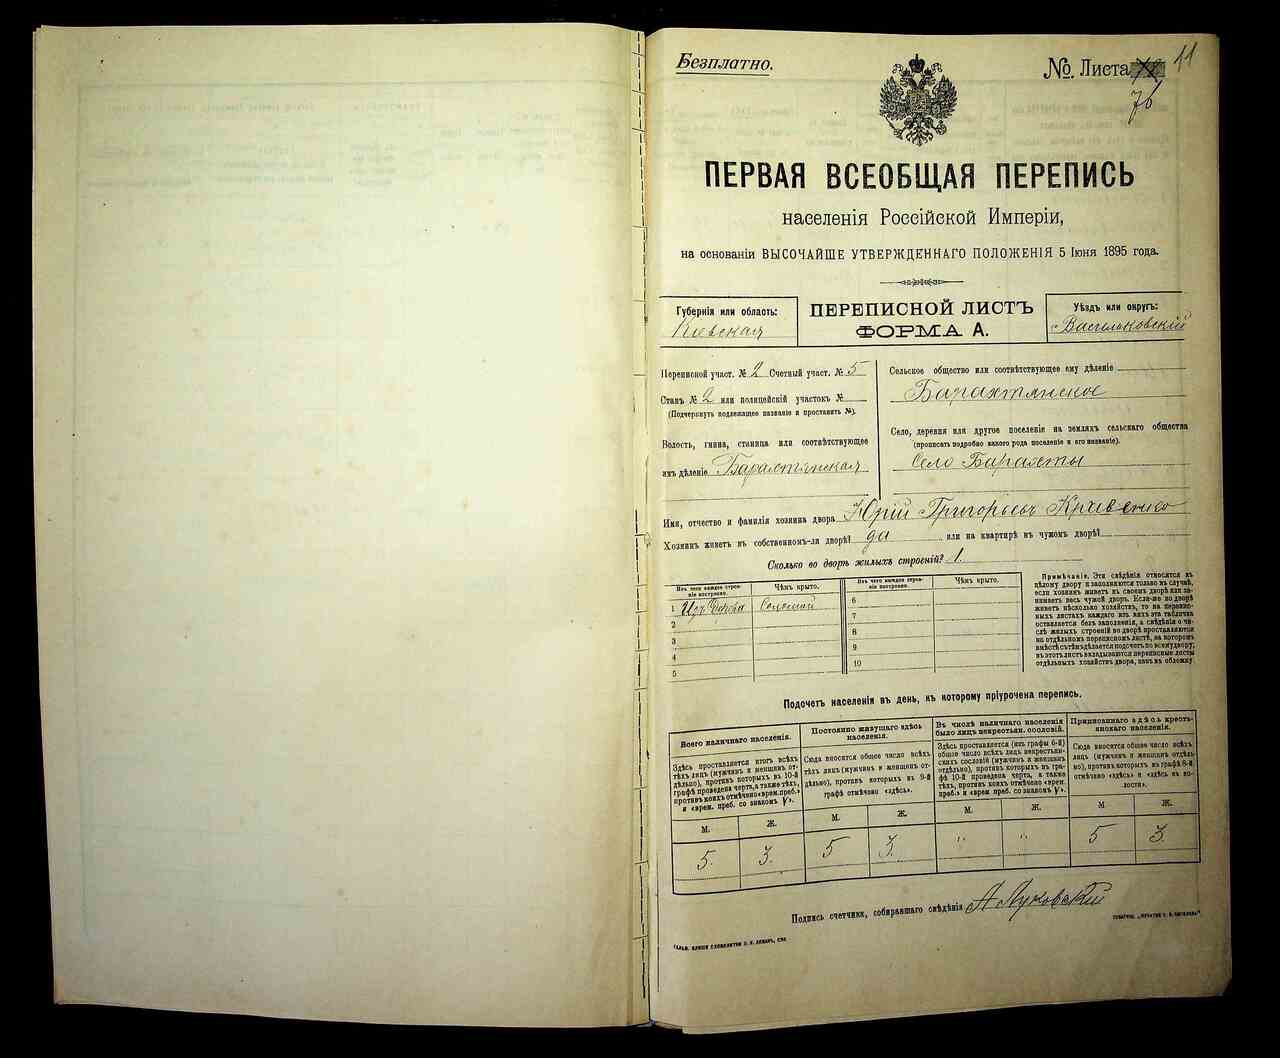 Безплатно.
№. Листа 76 11
ПЕРВАЯ ВСЕОБЩАЯ ПЕРЕПИСЬ
населенія Россійской Имперіи,
на основаніи ВЫСОЧАЙШЕ УТВЕРЖДЕННАГО ПОЛОЖЕНІЯ 5 Іюня 1895 года.
Губернія или область:
Кіевская
ПЕРЕПИСНОЙ ЛИСТЪ
ФОРМА А.
Уѣздъ или округъ:
Васильковскій
Переписной участ. № 2 Счетный участ. № 5
Станъ № 2 или полицейскій участокъ №
(Подчеркнуть подлежащее названіе и проставить №).
Волость, гмина, станица или соотвѣтствующее
имъ дѣленіе Барахтянская
Сельское общество или соотвѣтствующее ему дѣленіе
Барахтянское
Село, деревня или другое поселеніе на земляхъ сельскаго общества
(прописать подробно какого рода поселеніе и его названіе).
Село Барахты
Имя, отчество и фамилія хозяина двора Юрій Григорьевъ Кривенко
Хозяинъ живетъ въ собственномъ-ли дворѣ? да или на квартирѣ въ чужомъ дворѣ?
Сколько во дворѣ жилыхъ строеній? 1.
Изъ чего каждое строеніе построено.
Чѣмъ крыто.
Изъ чего каждое строеніе построено.
Чѣмъ крыто.
1 Изъ дерева Соломой
2
3
4
5
6
7
8
9
10
Примѣчаніе. Эти свѣдѣнія относятся къ
цѣлому двору и заполняются только въ случаѣ,
если хозяинъ живетъ въ своемъ дворѣ или за-
нимаетъ весь чужой дворъ. Если-же во дворѣ
живетъ нѣсколько хозяйствъ, то на перепис-
ныхъ листахъ каждаго изъ нихъ эта табличка
оставляется безъ заполненія, а свѣдѣнія о чи-
слѣ жилыхъ строеній во дворѣ проставляются
на отдѣльномъ переписномъ листѣ, на которомъ
вмѣстѣ съ тѣмъ дѣлается подсчетъ по всему двору;
въ этотъ листъ вкладываются переписные листы
отдѣльныхъ хозяйствъ двора, какъ въ обложку
Подсчетъ населенія въ день, къ которому пріурочена перепись.
Всего наличнаго населенія.
Здѣсь проставляется итогъ всѣхъ
тѣхъ лицъ (мужчинъ и женщинъ от-
дѣльно), противъ которыхъ въ 10-й
графѣ проведена черта, а также тѣхъ,
противъ коихъ отмѣчено «врем. преб.»
и «врем. преб. со знакомъ V».
Постоянно живущаго здѣсь
населенія.
Сюда вносится общее число всѣхъ
тѣхъ лицъ (мужчинъ и женщинъ от-
дѣльно), противъ которыхъ въ 9-й
графѣ отмѣчено «здѣсь».
Въ числѣ наличнаго населенія
было лицъ некрестьян. сословій.
Здѣсь проставляется (изъ графы 6-й)
общее число всѣхъ лицъ некрестьян-
скихъ сословій (мужчинъ и женщинъ
отдѣльно), противъ которыхъ въ гра-
фѣ 10-й проведена черта, а также
тѣхъ, противъ коихъ отмѣчено «врем.
преб.» и «врем. преб. со знакомъ V».
Приписаннаго здѣсь кресть-
янскаго населенія.
Сюда вносится общее число всѣхъ
лицъ (мужчинъ и женщинъ отдѣль-
но), противъ которыхъ въ графѣ 8-й
отмѣчено «здѣсь» и «здѣсь въ во-
лости».
М. Ж. М. Ж. М. Ж. М Ж.
5. 3. 5 3. " " 5 3.
Подпись счетчика, собиравшаго свѣдѣнія А Луковскій